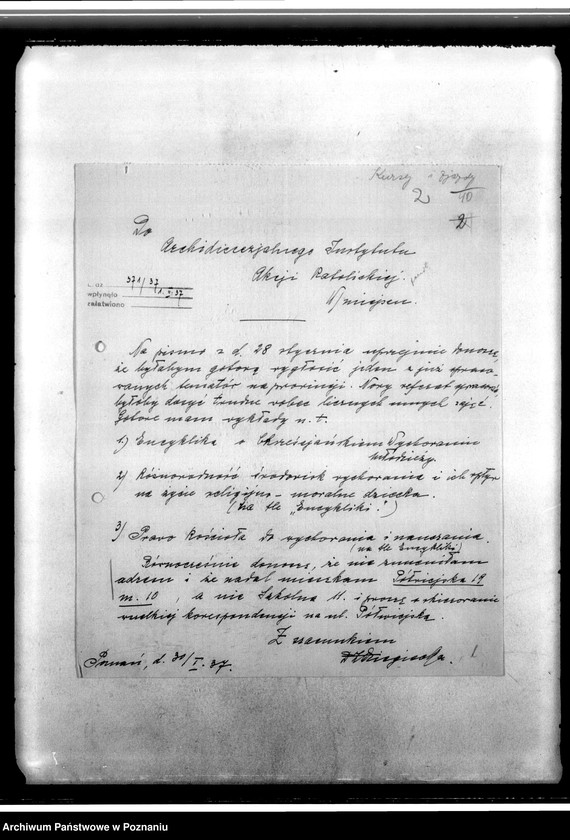 Kursy i zjazdy
2 40
2
Do
Archidiecezjalnego Instytutu
Akcji Katolickiej.
W miejscu.
L. dz. 371/37
wpłynęło 1.II.37
załatwiono
Na pismo z d. 28 stycznia uprzejmie donoszę,
że byłabym gotową wygłosić jeden z już opraco-
wanych tematów na prowincji. Nowy referat opracować
byłoby dosyć trudno wobec licznych innych zajęć.
Gotowe mam wykłady n. t.
1) Encyklika o Chrześcijańskiem Wychowaniu
młodzieży.
2) Różnorodność środowisk wychowania i ich wpływ
na życie religijno-moralne dziecka.
(na tle „Encykliki")
3) Prawo Kościoła do wychowania i nauczania.
(na tle Encykliki)
Równocześnie donoszę, że nie zmieniłam
adresu i że nadal mieszkam Półwiejska 19
m. 10, a nie Szkolna 11. i proszę o skierowanie
wszelkiej korespondencji na ul. Półwiejską.
Z szacunkiem
Poznań, d. 30/I.37.
Archiwum Państwowe w Poznaniu